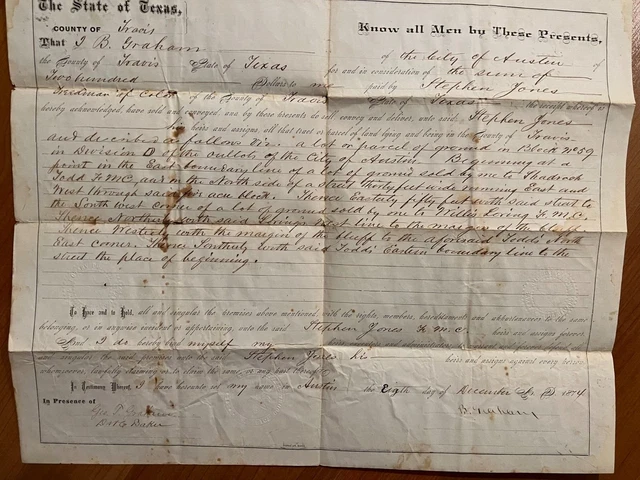 The State of Texas,
COUNTY OF Travis
Know all Men by These Presents,
That I B. Graham of the City of Austin of
the County of Travis State of Texas for and in consideration of the sum of
Two hundred Dollars to me paid by Stephen Jones
Freedman of Color of the County of Travis State of Texas the receipt whereof is
hereby acknowledged, have sold and conveyed and by these presents do sell, convey and deliver, unto said Stephen Jones
heirs and assigns, all that tract or parcel of land lying and being in the County of Travis
and described as follows Viz. a lot or parcel of ground in Block No 59
in Division O of the outlots of the City of Austin. Beginning at a
point in the East boundary line of a lot of ground sold by me to Shadrock
Todd F.M.C. and on the North side of a street thirty feet wide running East and
West through said block. Thence Easterly fifty feet with said street to
the South west corner of a lot of ground sold by me to Willis Loving F.M.C.
Thence Northerly with said Loving's West line to the margin of the bluff.
Thence Westerly with the margin of the bluff to the aforesaid Todds North
East corner. Thence Southerly with said Todds' Eastern boundary line to the
street the place of beginning.
To Have and to Hold, all and singular the premises above mentioned with the rights, members, hereditaments and appurtenances to the same
belonging, or in anywise incident or appertaining, unto the said Stephen Jones F.M.C. heirs and assigns forever.
And I do hereby bind myself my
and singular the said premises unto the said Stephen Jones his heirs and assigns against every person
whomsoever, lawfully claiming or to claim the same, or any part thereof.
In Testimony Whereof, I have hereunto set my name in Austin the Eigth day of December A. D. 1874
In Presence of
B. Graham